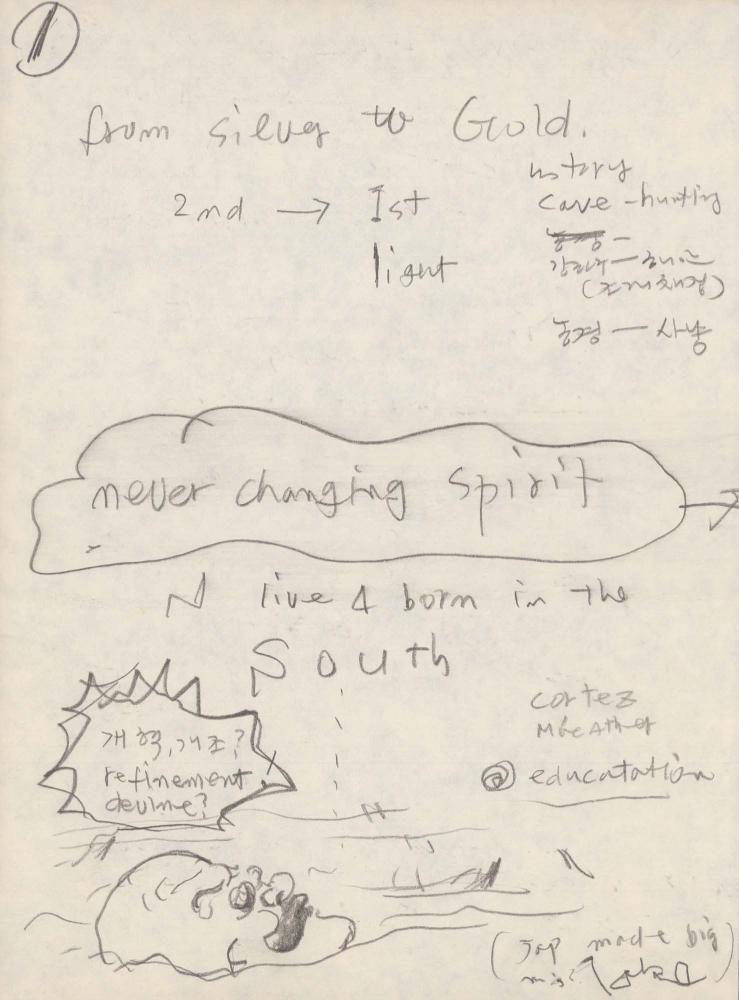 1
from silver to Gold.
2nd → 1st
light
history
cave - hunting
농경 — 사냥
never changing spirit
N live & born in the
South
개혁, 개조?
refinement
devine?
cortez
@ educatation
(Jap made big